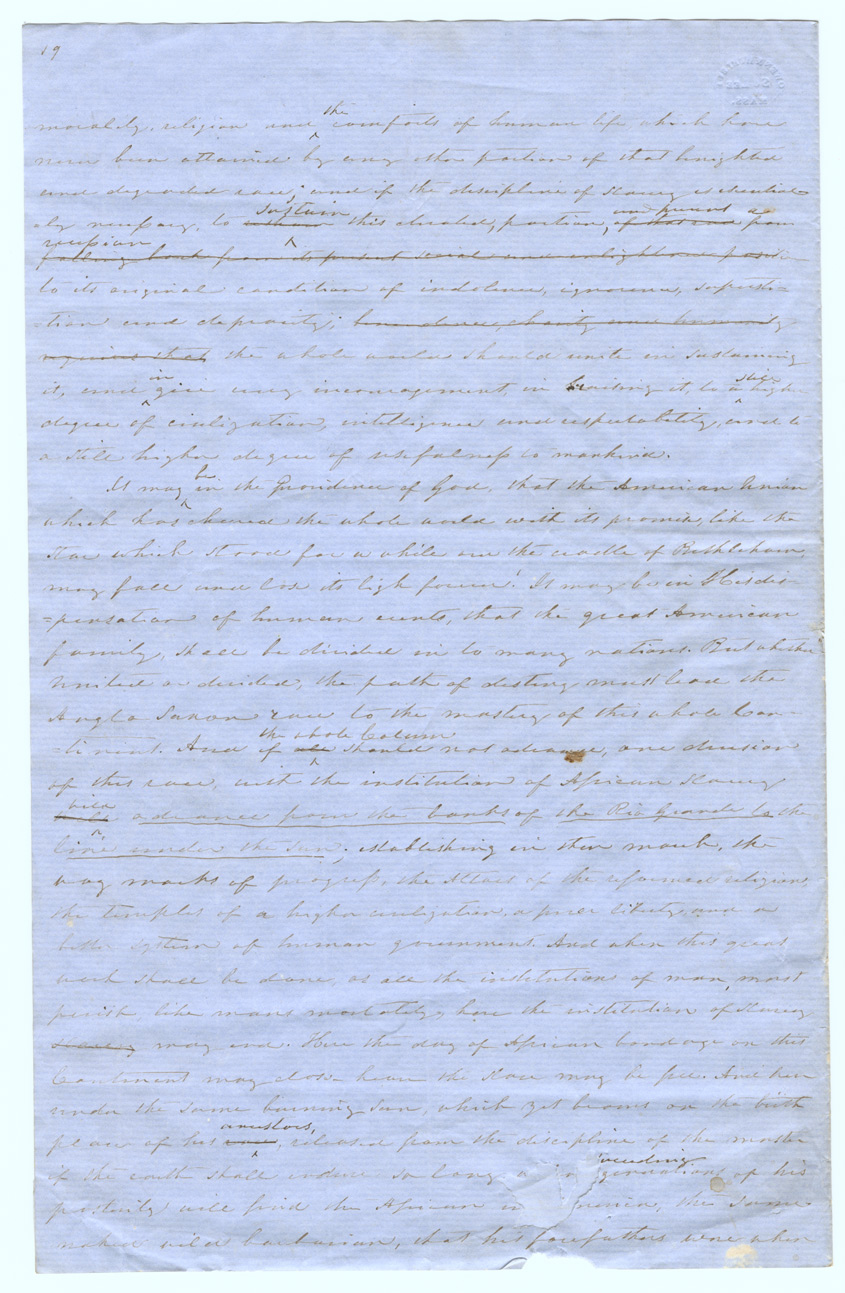 19
morality, religion and the comforts of human life which have
never been attained by any other portion of that benighted
and degraded race; and if the discipline of slavery is absolute-
ly necessary, to sustain this elevated, portion, and prevent a
recession
falling back from its present social and enlightened positi-
to its original condition of indolence, ignorance, supersti-
-tion and depravity; benevolence, charity and humanity
requires that the whole world should unite in sustaining
it, and in give any incouragement, in exciting it, to a still high-
degree of civilization, intelligence and respectability, and to
a still higher degree of usefulness to mankind.
It may be in the Providence of God, that the American Union
which has cheered the whole world with its promise, like the
star which stood for a while over the cradle of Bethleham,
may fall and lose its ligh forever. It may be in His dis-
=pensation of human events, that the great American
family, shall be divided in to many nations. But whether
United or divided, the path of destiny must lead the
Anglo Saxon race to the mastery of this whole Con-
=tinent. And if the whole Column all should not advance, one division
of this race, with the institution of African slavery
will advance from the banks of the Rio Grande to the
line under the sun; establishing in their march, the
way marks of progress, the Altars of the reformed religion,
the temples of a higher civilization, a purer liberty and a
better system of human government. And when this great
work shall be done, as all the institution of man, must
perish like mans mortality, here the institution of slavery
slavery may end. Here the day of African bondage on this
Continent may close here the slave may be free. And here
under the same burning sun, which yet beams on the birth
place of his ancestors, released from the discipline of the master
if the earth shall endure so long succeeding generations of his
posterity will find the African in the same
naked wild barbarian, that his forefathers were when